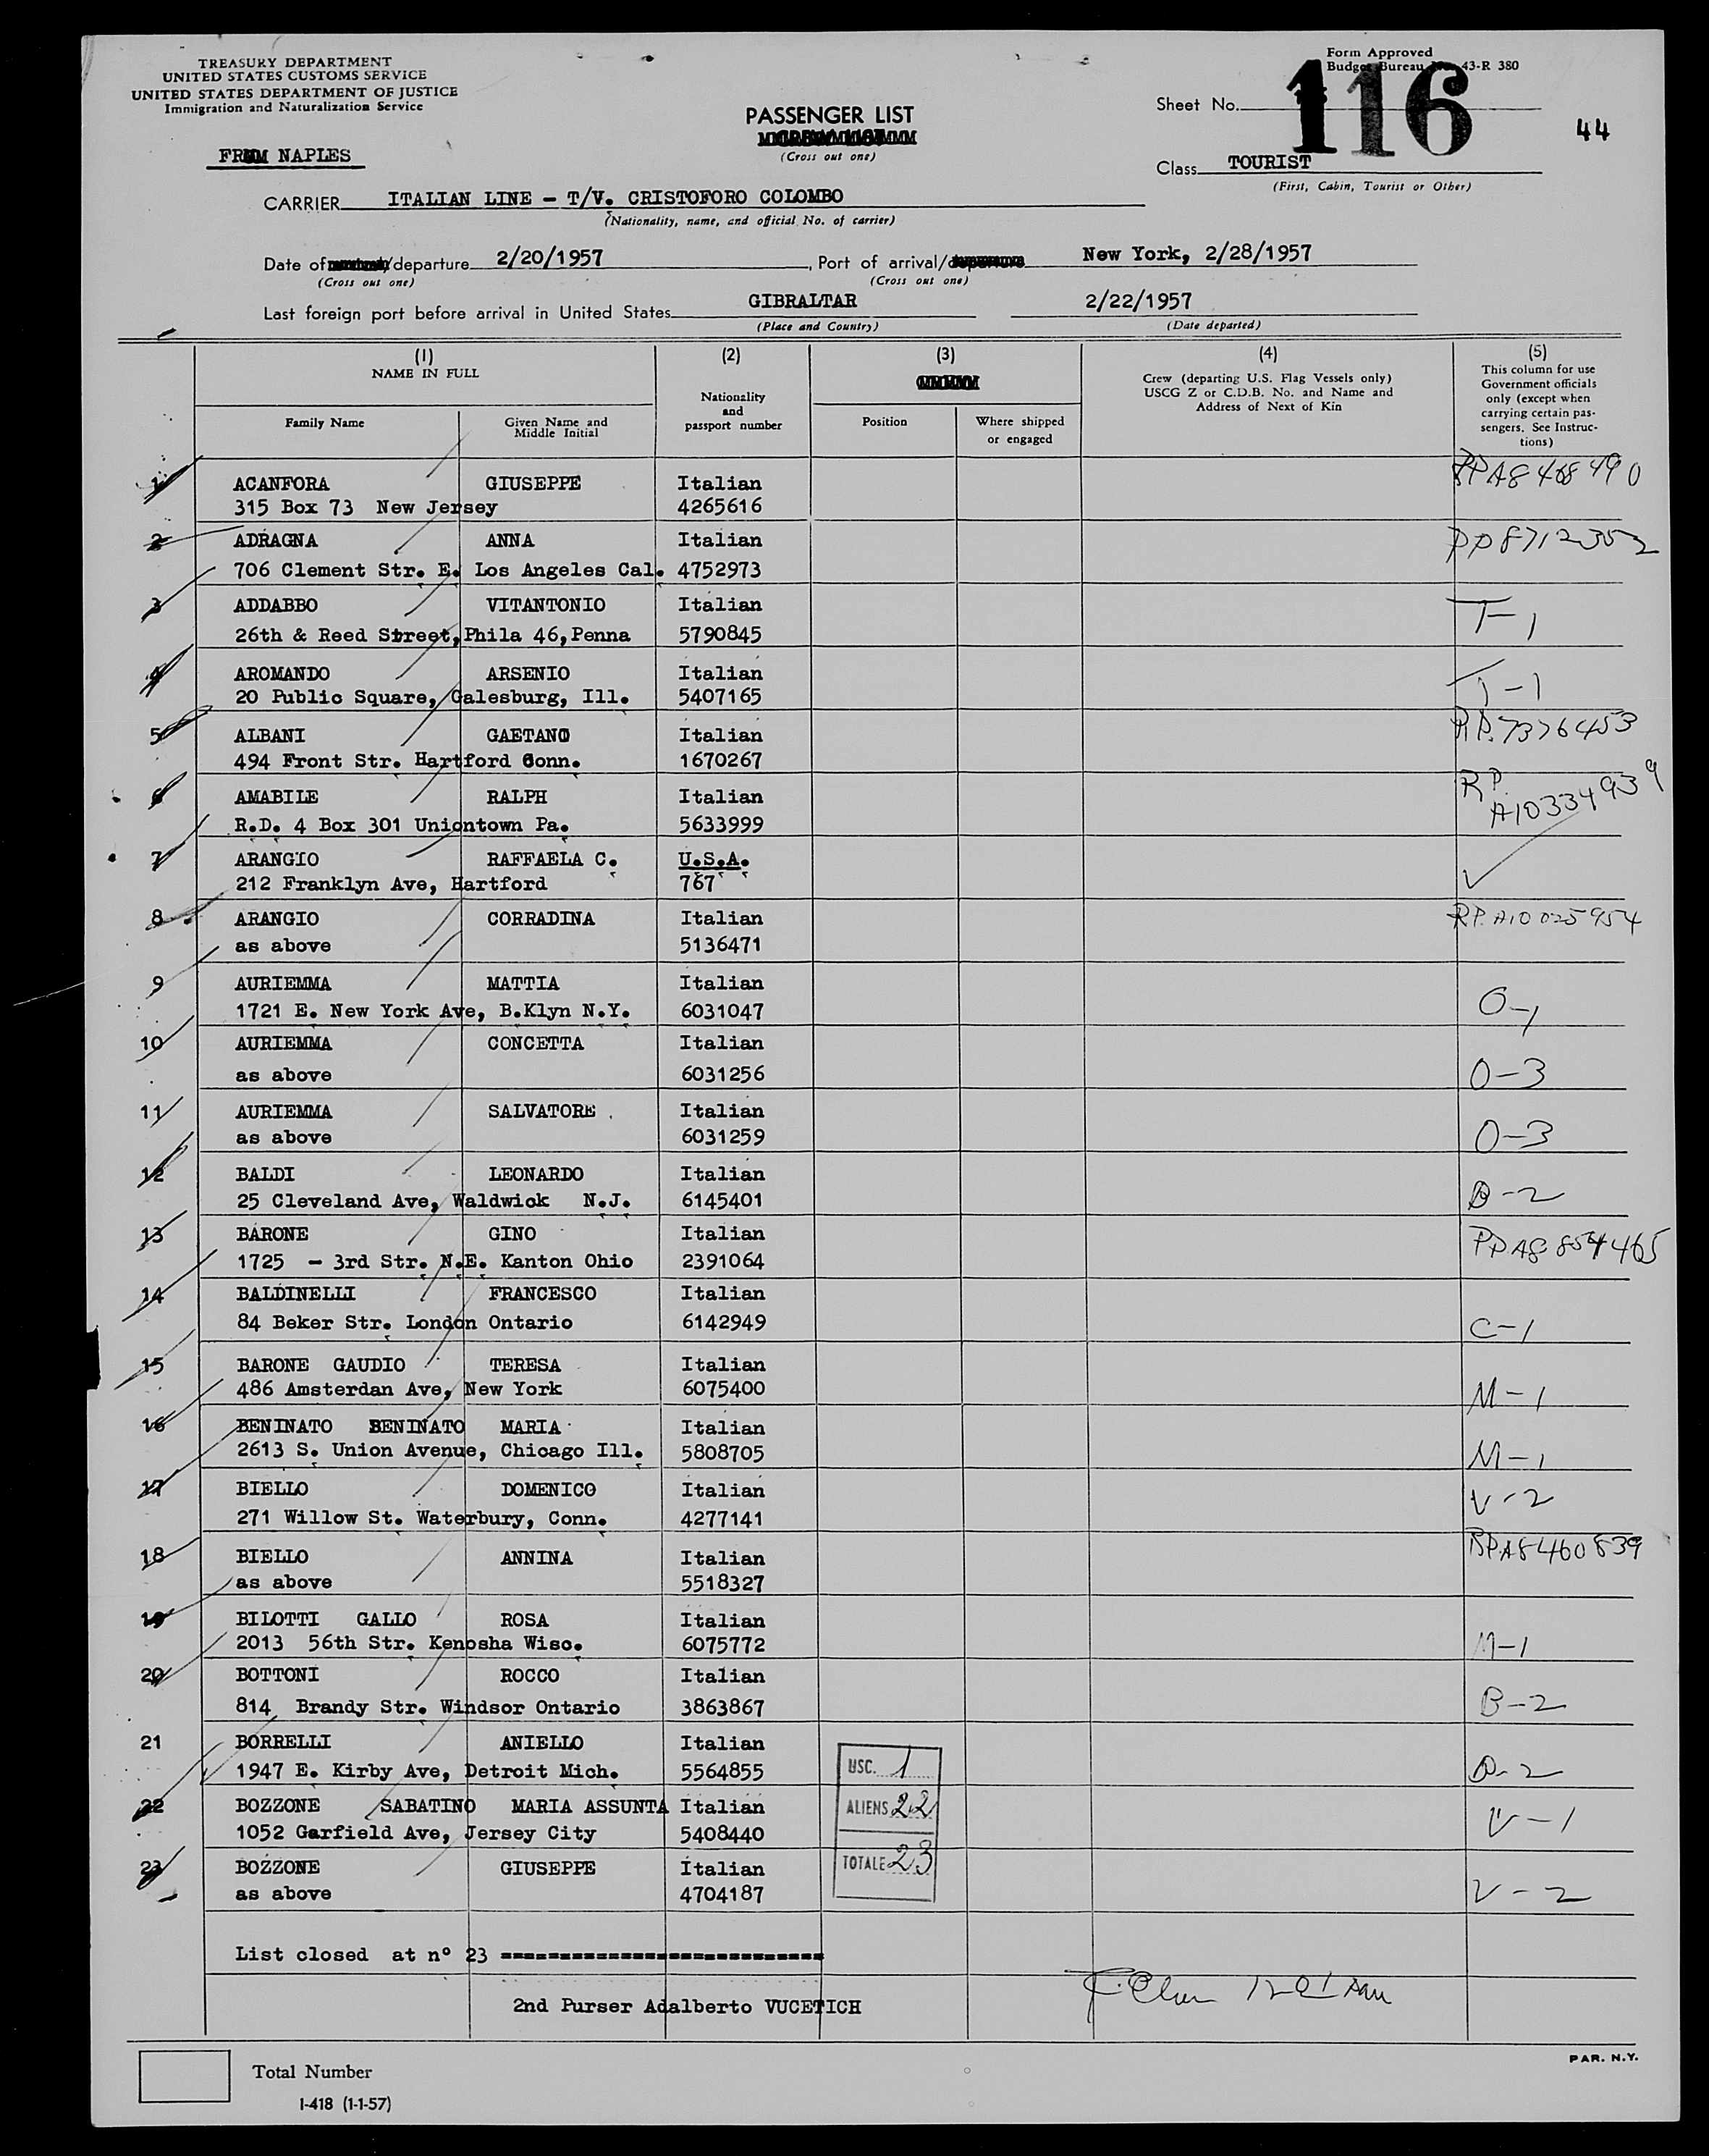 TREASURY DEPARTMENT
UNITED STATES CUSTOMS SERVICE
UNITED STATES DEPARTMENT OF JUSTICE
Immigration and Naturalization Service
FROM NAPLES
PASSENGER LIST
(Cross out one)
Form Approved
Budget Bureau No. 43-R 380
Sheet No. 116
44
Class TOURIST
(First, Cabin, Tourist or Other)
CARRIER ITALIAN LINE - T/V. CRISTOFORO COLOMBO
(Nationality, name, and official No. of carrier)
Date of /departure 2/20/1957, Port of arrival/departure New York, 2/28/1957
(Cross out one) (Cross out one)
Last foreign port before arrival in United States GIBRALTAR 2/22/1957
(Place and Country) (Date departed)
(1) (2) (3) (4) (5)
NAME IN FULL
Family Name
Given Name and Middle Initial
Nationality and passport number
Position
Where shipped or engaged
Crew (departing U.S. Flag Vessels only)
USCG Z or C.D.B. No. and Name and
Address of Next of Kin
This column for use
Government officials
only (except when
carrying certain pas-
sengers. See Instruc-
tions)
1 ACANFORA GIUSEPPE Italian RPA8468490
315 Box 73 New Jersey 4265616
2 ADRAGNA ANNA Italian PP8712352
706 Clement Str. E. Los Angeles Cal. 4752973
3 ADDABBO VITANTONIO Italian T-1
26th & Reed Street, Phila 46, Penna 5790845
4 AROMANDO ARSENIO Italian T-1
20 Public Square, Galesburg, Ill. 5407165
5 ALBANI GAETANO Italian RP.7376453
494 Front Str. Hartford Conn. 1670267
6 AMABILE RALPH Italian RP. A10334939
R.D. 4 Box 301 Uniontown Pa. 5633999
7 ARANGIO RAFFAELA C. U.S.A.
212 Franklyn Ave, Hartford 767
8 ARANGIO CORRADINA Italian RP. A10025954
as above 5136471
9 AURIEMMA MATTIA Italian O-1
1721 E. New York Ave, B.Klyn N.Y. 6031047
10 AURIEMMA CONCETTA Italian O-3
as above 6031256
11 AURIEMMA SALVATORE Italian O-3
as above 6031259
12 BALDI LEONARDO Italian B-2
25 Cleveland Ave, Waldwick N.J. 6145401
13 BARONE GINO Italian PPA8854465
1725 - 3rd Str. N.E. Kanton Ohio 2391064
14 BALDINELLI FRANCESCO Italian C-1
84 Beker Str. London Ontario 6142949
15 BARONE GAUDIO TERESA Italian M-1
486 Amsterdan Ave, New York 6075400
16 BENINATO BENINATO MARIA Italian M-1
2613 S. Union Avenue, Chicago Ill. 5808705
17 BIELLO DOMENICO Italian V-2
271 Willow St. Waterbury, Conn. 4277141
18 BIELLO ANNINA Italian RPA8460839
as above 5518327
19 BILOTTI GALLO ROSA Italian M-1
2013 56th Str. Kenosha Wisc. 6075772
20 BOTTONI ROCCO Italian B-2
814 Brandy Str. Windsor Ontario 3863867
21 BORRELLI ANIELLO Italian B-2
1947 E. Kirby Ave, Detroit Mich. 5564855
22 BOZZONE SABATINO MARIA ASSUNTA Italian V-1
1052 Garfield Ave, Jersey City 5408440
23 BOZZONE GIUSEPPE Italian V-2
as above 4704187
USC. 1
ALIENS 22
TOTALE 23
List closed at n° 23
2nd Purser Adalberto VUCETICH
Total Number
I-418 (1-1-57)
PAR. N.Y.